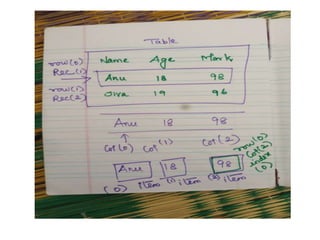 Table
row(0)
Rec(1)
row(1)
Rec(2)
Name Age Mark
Anu 18 98
Siva 19 96
Anu 18 98
Col(0) Col(1) Col(2)
row(0)
Col(2)
index
(0)
Anu 18 98
(0) item (1) item (2) item